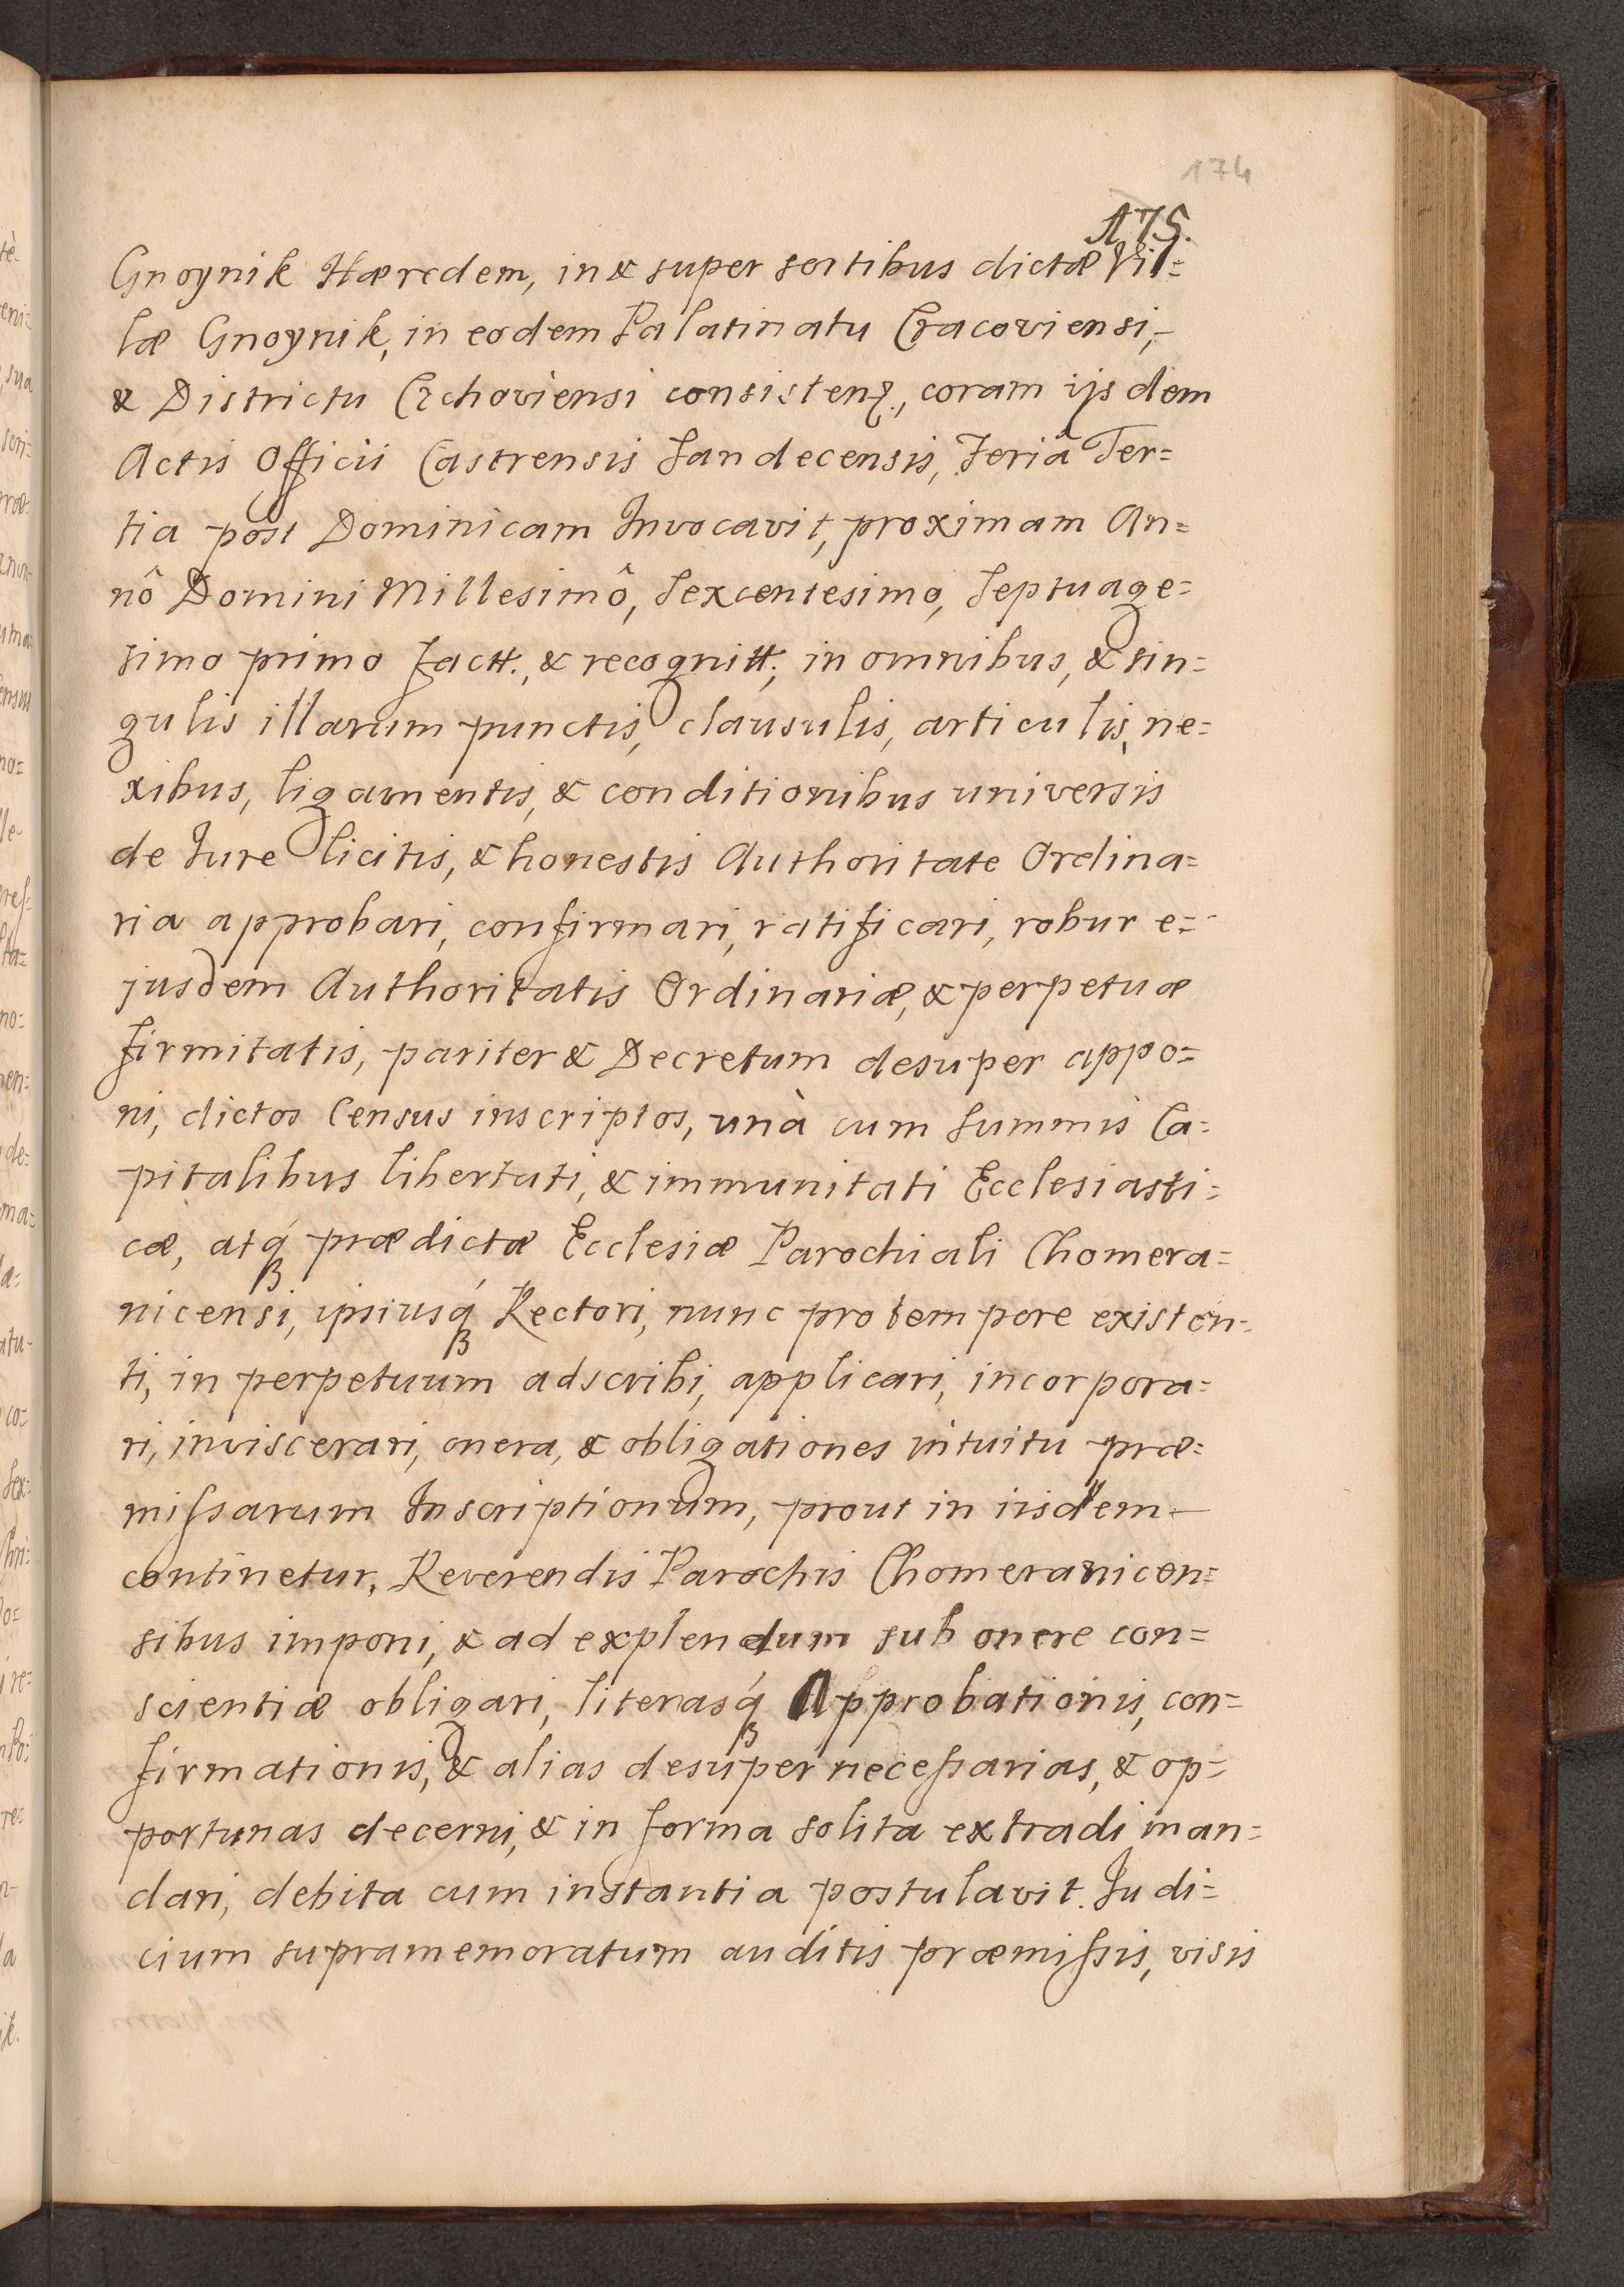 174
175.
Gnoynik Hæredem, in & super sortibus dictæ Vil=
læ Gnoynik, in eodem Palatinatu Cracoviensi,
& Districtu Czchoviensi consisten., coram ijsdem
Actis Officii Castrensis Sandecensis, Feriâ Ter=
tia post Dominicam Invocavit, proximam An=
nô Domini Millesimô, Sexcentesimo, Septuage=
simo primo factt., & recognitt., in omnibus, & sin=
gulis illarum punctis, clausulis, articulis, ne=
xibus, ligamentis, & conditionibus universis
de Jure licitis, & honestis Authoritate Ordina=
ria approbari, confirmari, ratificari, robur e=
jusdem Authoritatis Ordinariæ, & perpetuæ
firmitatis, pariter & Decretum desuper appo=
ni, dictos Census inscriptos, unà cum Summis Ca=
pitalibus libertati, & immunitati Ecclesiasti=
cæ, atq́ prædictæ Ecclesiæ Parochiali Chomera=
nicensi, ipsiusq́ Rectori, nunc pro tempore existen=
ti, in perpetuum adscribi, applicari, incorpora=
ri, inviscerari, onera, & obligationes intuitu præ=
miſsarum Inscriptionum, prout in iisdem
continetur, Reverendis Parochis Chomeranicen=
sibus imponi, & ad explendum sub onere con=
scientiæ obligari, literasq́ Approbationis, con=
firmationis, & alias desuper neceſsarias, & op=
portunas decerni, & in forma solita extradi man=
dari, debita cum instantia postulavit. Judi=
cium supramemoratum auditis præmiſsis, visis